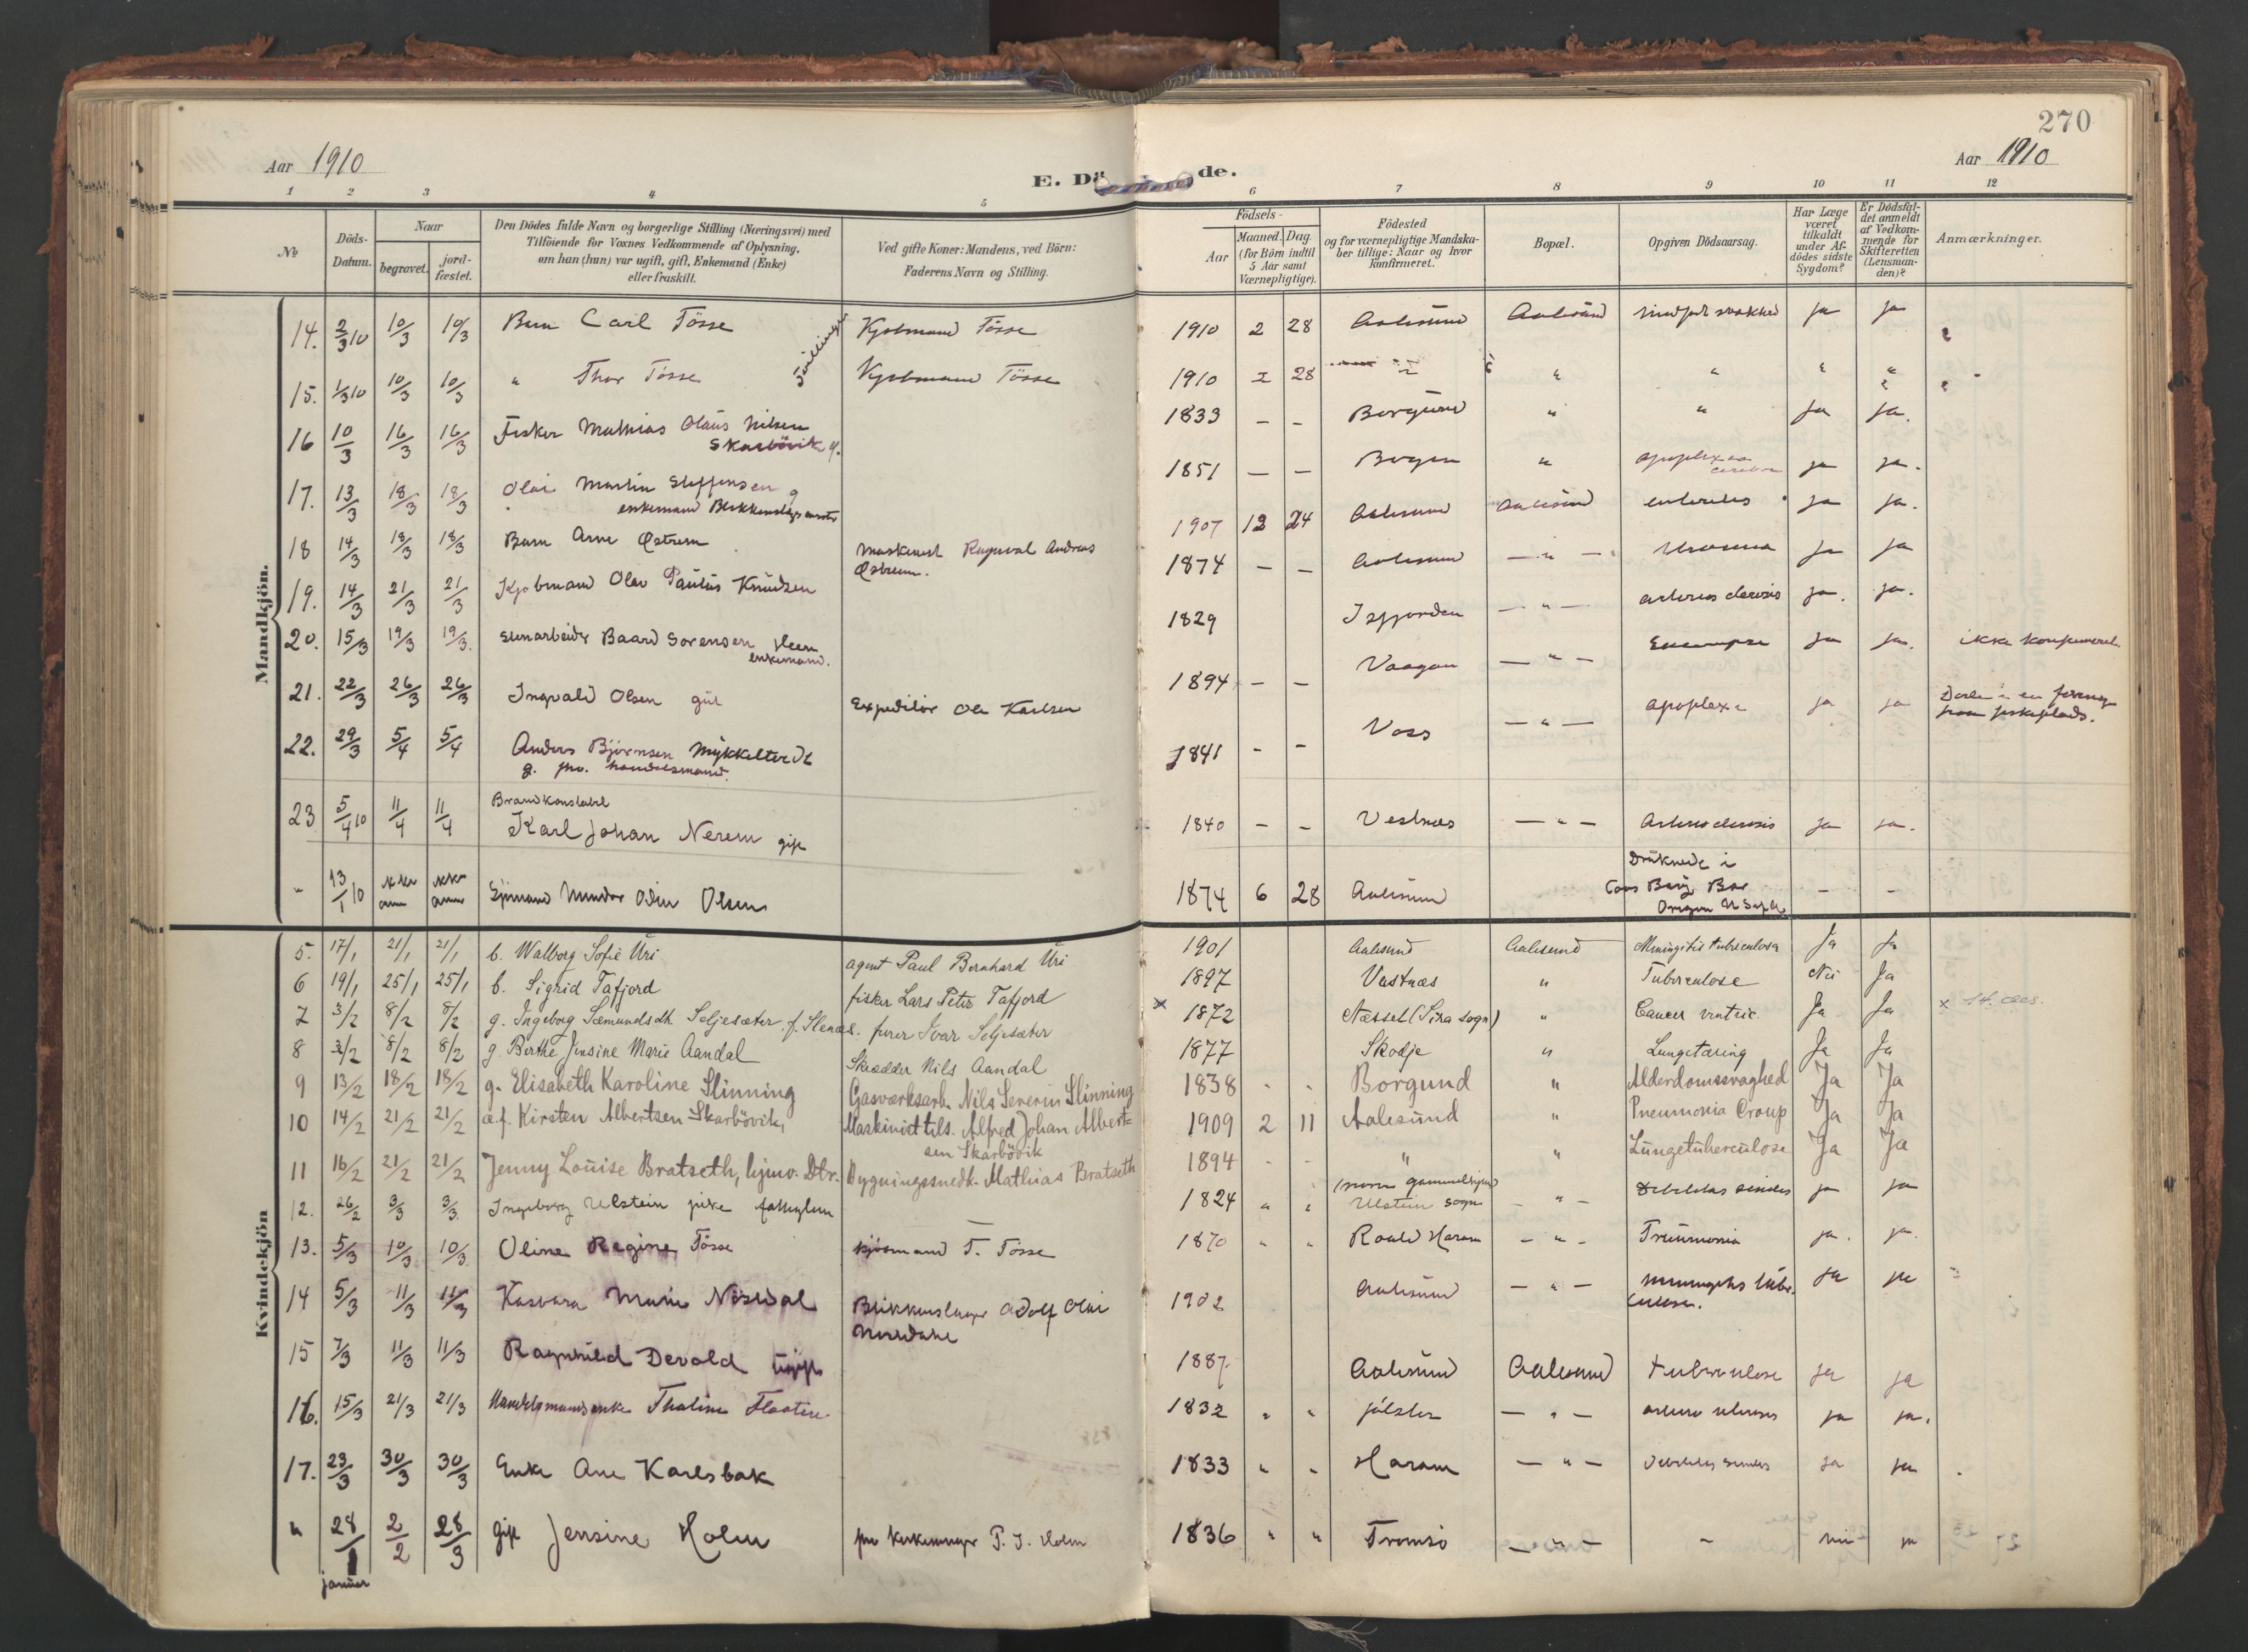 270
Aar 1910
E. Dö de.
Aar 1910
1 2 3 4 5 6 7 8 9 10 11 12
№
Döds-
Datum.
Naar
begravet.
jord-
fæstet.
Den Dödes fulde Navn og borgerlige Stilling (Næringsvei) med
Tilföiende for Voxnes Vedkommende af Oplysning,
om han (hun) var ugift, gift, Enkemand (Enke)
eller fraskilt.
Ved gifte Koner: Mandens, ved Börn:
Faderens Navn og Stilling.
Födsels-
Aar
Maaned.
Dag.
(for Börn indtil
5 Aar samt
Værnepligtige).
Födested
og for værnepligtige Mandska-
ber tillige: Naar og hvor
konfirmeret.
Bopæl.
Opgiven Dödsaarsag.
Har Læge
været
tilkaldt
under Af-
dödes sidste
Sygdom?
Er Dödsfal-
det anmeldt
af Vedkom-
mende for
Skifteretten
(Lensman-
den)?
Anmærkninger.
Mandkjön.
14. 2/3 10 10/3 10/3 Barn Carl Tösse Tvillinger Kjöbmand Tösse 1910 2 28 Aalesund Aalesund ja ja
15. 1/3 10 10/3 10/3 " Thor Tösse Kjöbmand Tösse 1910 2 28 " " " " "
16 10/3 16/3 16/3 Fisker Mathias Olaus Nilsen 1833 - - Borgund " " ja ja.
Skarbövik g.
17. 13/3 18/3 18/3 Olai Martin Steffensen 1851 - - Bergen " apoplexia ja ja.
enkemand
18 14/3 18/3 18/3 Barn Arne Östrem Maskinist Ragnval Andreas 1907 12 24 Aalesund Aalesund ja ja.
Östrem.
19. 14/3 21/3 21/3 Kjöbmand Olav Paulus Knudsen 1874 - - Aalesund - " - ja ja
20. 15/3 19/3 19/3. Stenarbeider Baard Sorensen Steen 1829 Isfjorden - " - ja. ja.
enkemand.
21. 22/3 26/3 26/3 Ingvald Olsen gut Expeditör Ole Karlsen 1894 - - Vaagan - " - ja ja. ikke
22. 29/3 5/4 5/4 Anders Björnsen Mykkeltvedt 1841 - - Voss - " - apoplexi ja ja
g. fhv. handelsmand.
23 5/4 10 11/4 11/4 Brandkonstabel
Karl Johan Nerem gift 1840 - - Vestnes - " - ja ja.
" 13/1 10 Sjömand Odin Olsen 1874 6 28 Aalesund Druknede i - -
Coos Bay Bar
Oregon
Kvindekjön
5. 17/1 21/1 21/1 b. Walborg Sofie Uri agent Paul Bernhard Uri 1901 Aalesund Aalesund Meningitis tuberculosa Ja Ja
6 19/1 25/1 25/1 b. Sigrid Tafjord fisker Lars Peter Tafjord 1897 Vestnæs " Tuberculose Nei Ja
7 3/2 8/2 8/2 g. Ingeborg Sæmundsdtr. Seljesæter Ivar Seljesæter × 1872 Næsset (Sira sogn) " Cancer ventric. Ja Ja ×
8 3/2 8/2 8/2 g. Berthe Jensine Marie Aandal Skrædder Nils Aandal 1877 Skodje " Lungetæring Ja Ja
9 13/2 18/2 18/2 g. Elisabeth Karoline Slinning Gasværksarb. Nils Severin Slinning 1838 - - Borgund " Alderdomssvaghed Ja Ja
10 14/2 21/2 21/2 æ.f. Kirsten Albertsen Skarbövik, Maskinist tils. Alfred Johan Albert= 1909 2 11 Aalesund " Pneumonia Croup Ja Ja
sen Skarbövik
11 16/2 21/2 21/2 Jenny Louise Bratseth, hjmv. Dtr. Bygningssnedk. Mathias Bratseth 1894 - - " " Lungetuberculose Ja Ja
12. 26/2 3/3 3/3. Ingeborg Ulstein pike 1824 " " Ulstein sogn - " - ja ja
13. 5/3 10/3 10/3. Oline Regine Tösse kjöbmand T. Tösse 1870 " " Roald Haram - " - ja. ja.
14 5/3 11/3 11/3 Marie Adolf Olai 1902 Aalesund - " - ja ja
15 7/3 11/3 11/3 Ragnhild Devold ugift 1887 Aalesund Aalesund tuberculose ja ja
16. 15/3 21/3 21/3 Handelsmandsenke Thaline 1832 " " Jölster - " - ja ja.
17. 23/3 30/3 30/3 Enke Ane Karlsbak 1833 " " Haram - " - ja ja
" 28/1 2/2 28/3 gift Jensine Holm P. J. Holm 1836 " " Tromsö - " - - nei ja
januar